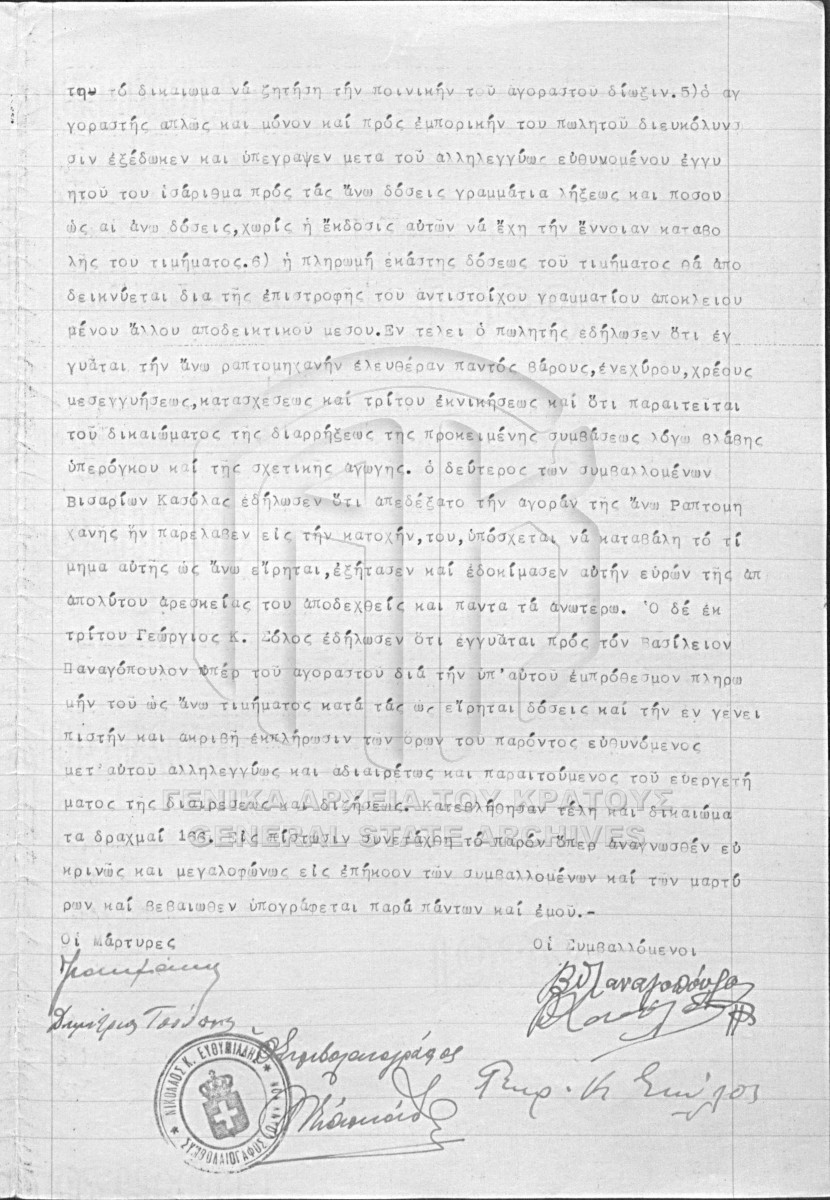 την τό δικαιωμα νά ζητήση τήν ποινικήν τοῦ ἀγοραστοῦ δίωξιν.5)ὁ αγ
γοραστής απλῶς και μόνον καί πρός ἐμπορικήν του πωλητοῦ διευκόλυνσ
σιν ἐξέδωκεν και ὑπεγραψεν μετα τοῦ αλληλεγγύως εὐθυνομένου ἐγγυ
ητοῦ του ἰσάριθμα πρός τάς ἄνω δόσεις γραμμάτια λήξεως και ποσου
ὡς αἱ ἀνω δόσεις,χωρίς ἡ ἔκδοσις αὐτῶν νά ἔχη τήν ἔννοιαν καταβο
λῆς του τιμήματος.6) ἡ πληρωμή ἑκάστης δόσεως τοῦ τιμήματος θά ἀπο
δεικνύεται δια τῆς ἐπιστροφῆς τοῦ ἀντιστοίχου γραμματίου ἀποκλειου
μένου ἄλλου αποδεικτικοῦ μεσου.Εν τελει ὁ πωλητής εδήλωσεν ὅτι ἐγ
γυᾶται τήν ἄνω ραπτομηχανήν ἐλευθέραν παντός βάρους,ἐνεχύρου,χρέους
μεσεγγυήσεως,κατασχεσεως καί τρίτου ἐκνικήσεως καί ὅτι παραιτεῖται
τοῦ δικαιώματος τῆς διαρρήξεως της προκειμένης συμβάσεως λόγω βλάβης
ὑπερόγκου καί τῆς σχετικῆς αγωγης. ὁ δεύτερος των συμβαλλομένων
Βισαρίων Κασόλας ἐδήλωσεν ὅτι ἀπεδέξατο τήν ἀγοράν τῆς ἄνω Ραπτομη
χανῆς ἥν παρελαβεν εἰς τήν κατοχήν,του,ὑπόσχεται νά καταβάλη τό τί
μημα αὐτῆς ὡς ἄνω εἴρηται,ἐξήτασεν καί ἐδοκίμασεν αὐτήν εὑρών τῆς ἀπ
απολύτου ἀρεσκείας του ἀποδεχθείς και παντα τά ἀνωτερω. Ὁ δέ ἐκ
τρίτου Γεώργιος Κ. Σόλος ἐδήλωσεν ὅτι ἐγγυᾶται πρός τόν Βασίλειον
Παναγόπουλον ὑπέρ τοῦ ἀγοραστοῦ διά τήν ὑπ'αὐτοῦ ἐμπρόθεσμον πληρω
μήν τοῦ ὡς ἄνω τιμήματος κατά τάς ὡς εἴρηται δόσεις καί τήν εν γενει
πιστήν και ακριβῆ ἐκπλήρωσιν τῶν ὁρων του παρόντος εὐθυνόμενος
μετ'αὐτου αλληλεγγύως και αδιαιρέτως και παραιτούμενος τοῦ εὐεργετή
ματος της διαιρεσεως και διζήσεως. Κατεβλήθησαν τέλη και δικαιώμα
τα δραχμαί 166. Εἰς πίστωσιν συνετάχθη τό παρόν ὅπερ ἀναγνωσθέν εὐ
κρινῶς και μεγαλοφώνως εις ἐπήκοον τῶν συμβαλλομένων καί τῶν μαρτύ
ρων καί βεβαιωθεν ὑπογράφεται παρά πάντων καί ἐμοῦ.-
Οἱ Μάρτυρες Οἱ Συμβαλλόμενοι
Β Παναγοπουλος
Δημήτριος
ὁ Συμβολαιογράφος
Γεωρ. Κ Σκόλος
ΝΙΚΟΛΑΟΣ Κ. ΕΥΘΥΜΙΑΔΗΣ
ΣΥΜΒΟΛΑΙΟΓΡΑΦΟΣ
ΓΕΝΙΚΑ ΑΡΧΕΙΑ ΤΟΥ ΚΡΑΤΟΥΣ
GENERAL STATE ARCHIVES